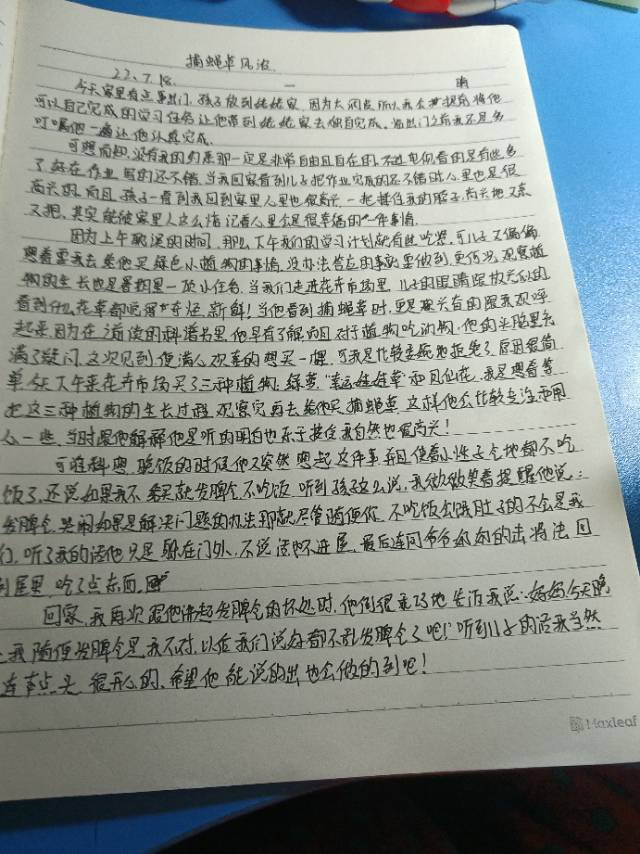 捕蝇草风波
22.7.18. 一 晴
今天家里有点事出门,孩子放到姥姥家,因为太闷热所以我会提前将他
可以自己完成的学习任务让他带到姥姥家去做自完成,出门之前我还是多
叮嘱他一遍让他认真完成.
可想而知,没有我的约束那一定是非常自由且自在的,不过电视看的是有些多
了,好在作业写的还不错,当我回家看到儿子把作业完成的还不错时心里也是很
高兴的,而且孩子一看到我回到家里人也很高兴,一把搂住我的脖子,高兴地又亲
又抱,其实能被家里人这么惦记着心里全是很幸福的一件事情.
因为上午耽误的时间,那么下午我们的学习计划就有些吃紧,可儿子又偏偏
想着要我去给他买绿色小植物的事情,没办法答应的事就要做到,更何况观察植
物的生长也是暑期里一项小任务,当我们走进花卉市场里,儿子的眼睛绽放光似的
看到什么花草都觉得好奇怪,新鲜!当他看到捕蝇草时,更是兴奋的跟我欢呼
起来,因为在之前读的科普书里,他早有了解,而且对于植物吃动物,他的头脑里充
满了疑问,这次见到便满心欢喜的想买一棵,可我是比较委婉地拒绝了,原因很简
单,今天下午来花卉市场买了三种植物,绿萝,“幸运娃娃草”和凤仙花,我是想着等
把这三种植物的生长过程观察完再去给他买捕蝇草,这样他会比较专注和用
心一些,当时跟他解释他是听的明白也乐于接受我自然也很高兴!
可谁料想,晚饭的时候他又突然想起这件事并且使着小性子令地都不吃
饭了,还说如果我不买就发脾气不吃饭,听到孩子这么说,我微微笑着提醒他说:
发脾气,哭闹如果是解决问题的办法那就尽管随便你,不吃饭会饿肚子的不会是我
们,听了我的话他只是躲在门外,不说话也不进屋,最后连同爷爷奶奶的击将法回
到屋里,吃了点东西,
回家,我再次跟他讲起发脾气的坏处时,他倒很乖巧地告诉我说:妈妈今天晚
上我随便发脾气是我不对,以后我们说好都不乱发脾气了吧!听到儿子的话我当然
连连点头,很开心的,希望他能说的出也会做的到吧!
Maxleaf